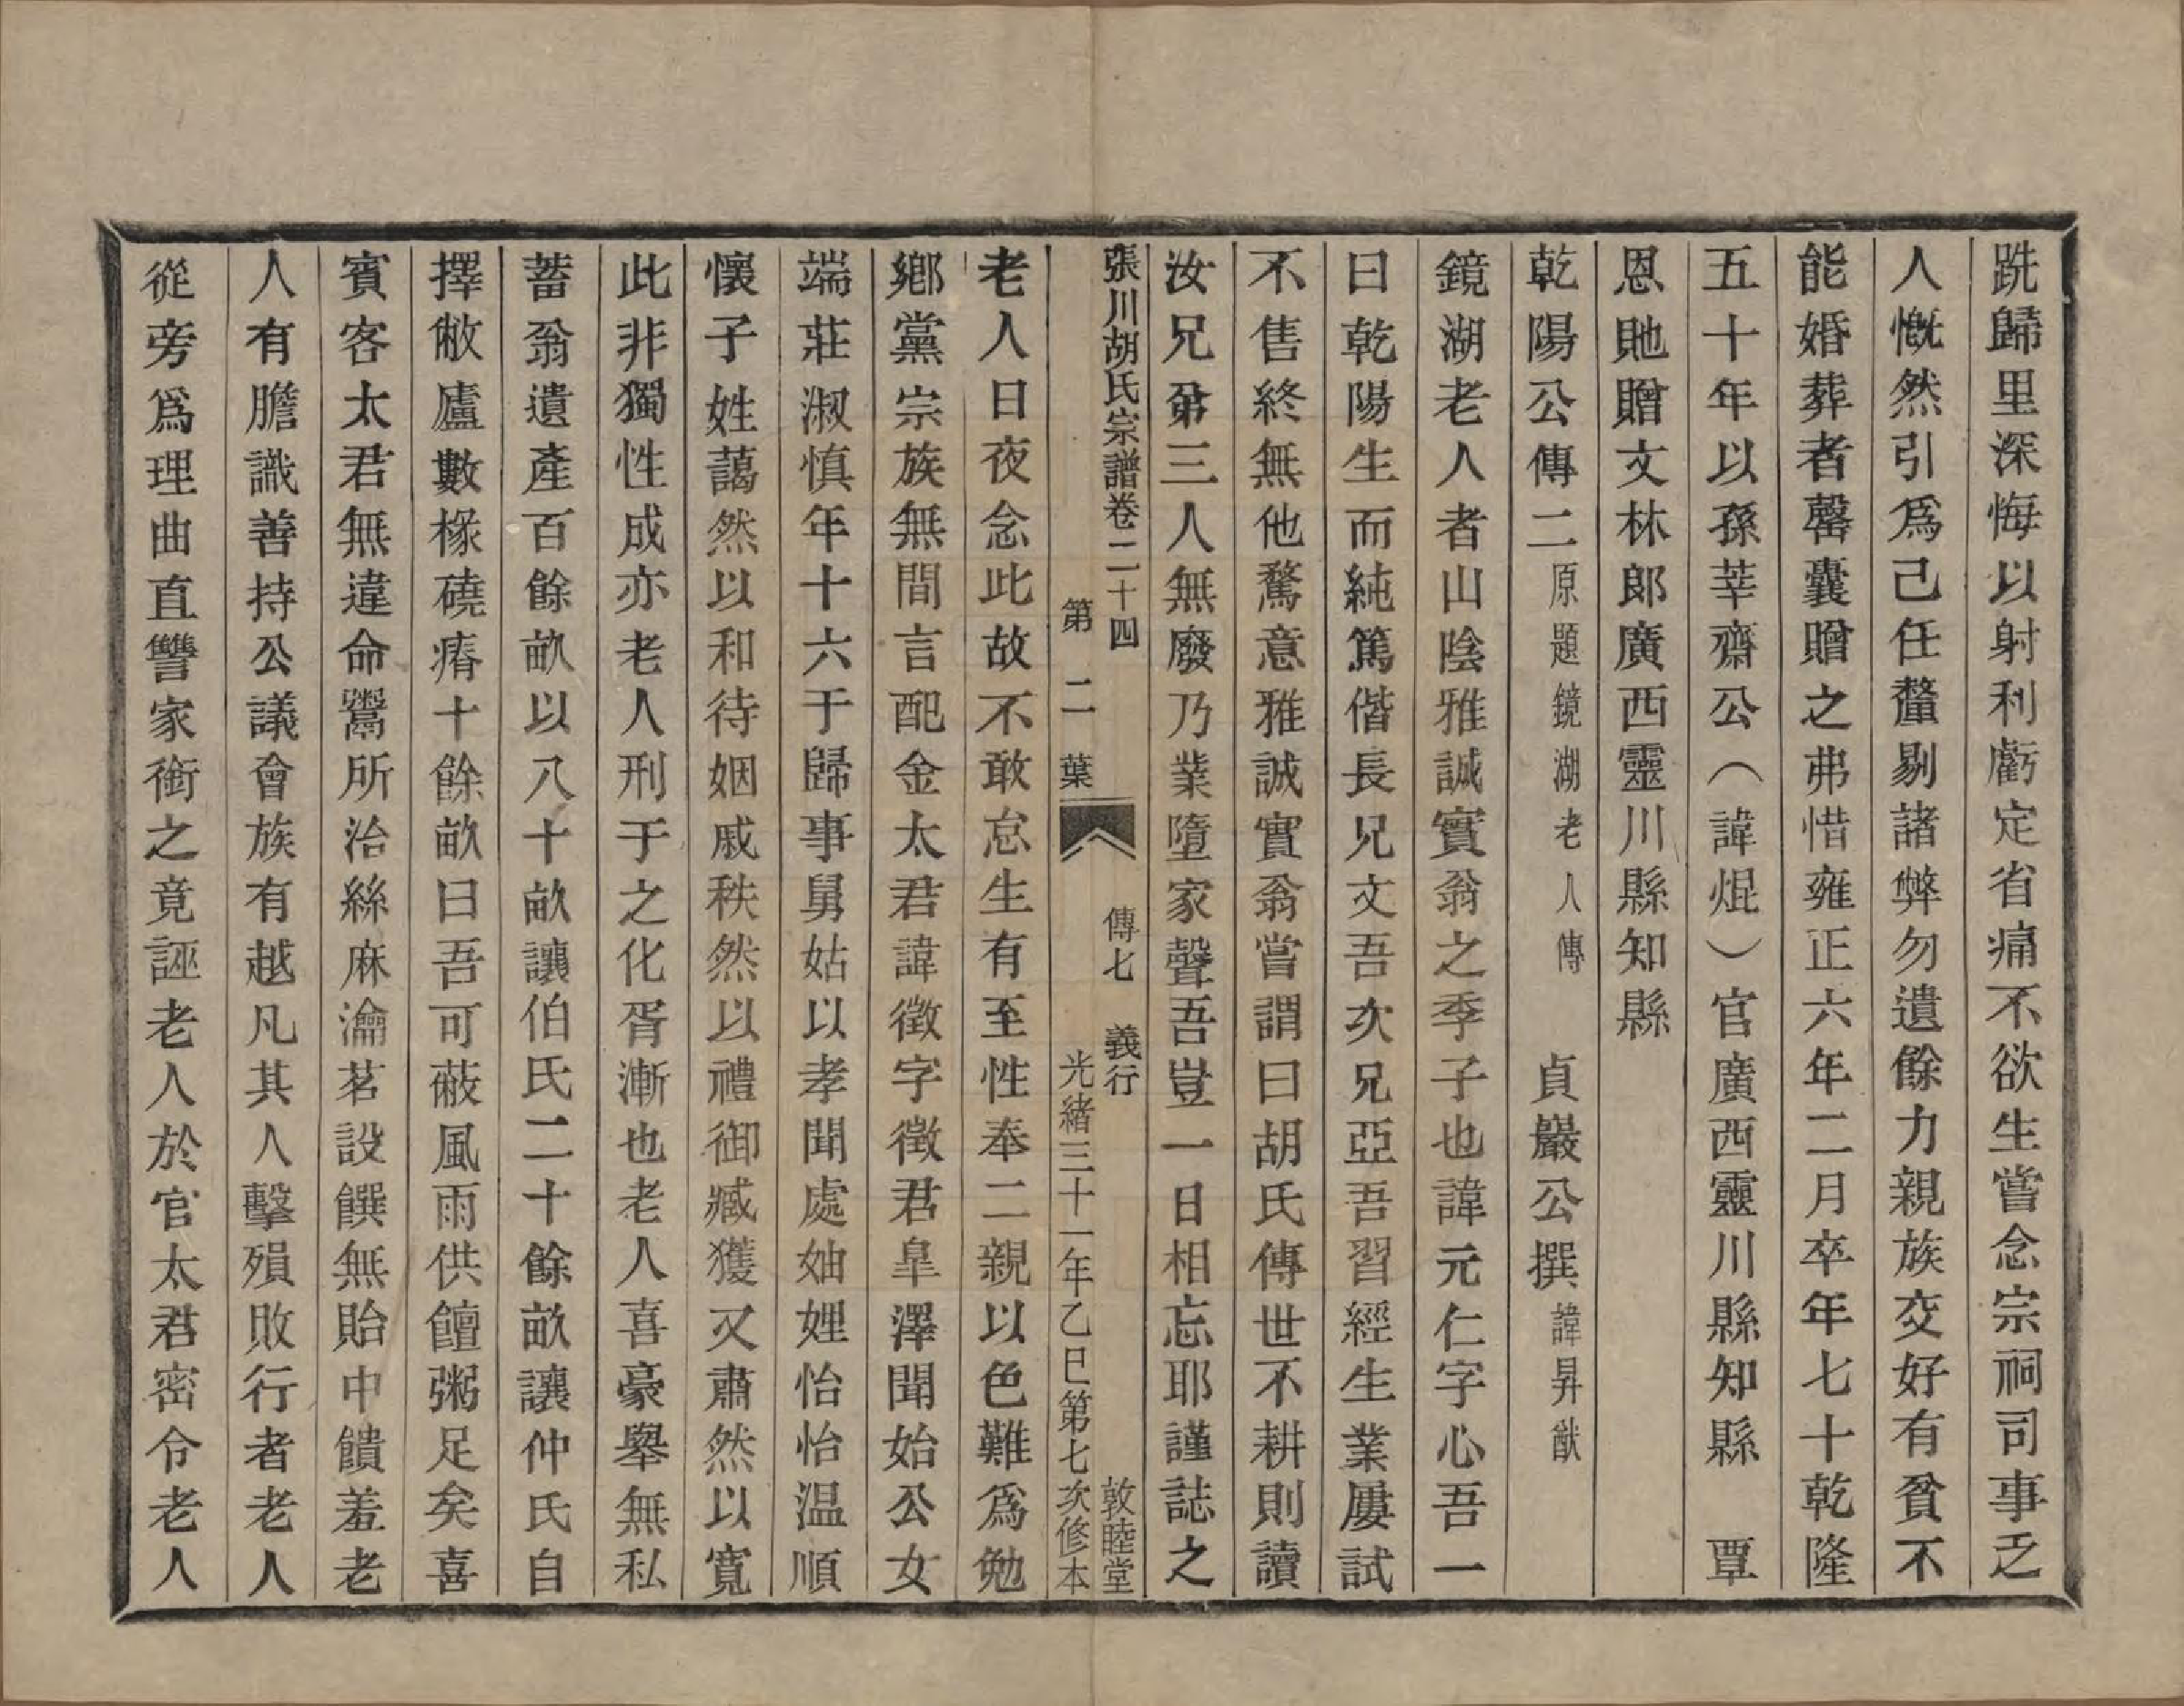 跣歸里深悔以射利虧定省痛不欲生嘗念宗祠司事乏
人慨然引爲己任釐剔諸弊勿遺餘力親族交好有貧不
能婚葬者罄囊贈之弗惜雍正六年二月卒年七十乾隆
五十年以孫莘齋公（諱焜）官廣西靈川縣知縣　覃
恩貤贈文林郎廣西靈川縣知縣
乾陽公傳二原題鏡湖老人傳　貞巖公撰諱昇猷
鏡湖老人者山陰雅誠實翁之季子也諱元仁字心吾一
曰乾陽生而純篤偕長兄文吾次兄亞吾習經生業屢試
不售終無他騖意雅誠實翁嘗謂曰胡氏傳世不耕則讀
汝兄弟三人無廢乃業墮家聲吾豈一日相忘耶謹誌之
張川胡氏宗譜卷二十四　傳七　義行　敦睦堂
第二葉　光緒三十一年乙巳第七次修本
老人日夜念此故不敢怠生有至性奉二親以色難爲勉
鄉黨宗族無間言配金太君諱徵字徵君皐澤聞始公女
端莊淑愼年十六于歸事舅姑以孝聞處妯娌怡怡温順
懷子姓藹然以和待姻戚秩然以禮御臧獲又肅然以寬
此非獨性成亦老人刑于之化胥漸也老人喜豪舉無私
蓄翁遺產百餘畝以八十畝讓伯氏二十餘畝讓仲氏自
擇敝廬數椽磽瘠十餘畝曰吾可蔽風雨供饘粥足矣喜
賓客太君無違命鬻所治絲麻瀹茗設饌無貽中饋羞老
人有膽識善持公議會族有越凡其人擊殞敗行者老人
從旁爲理曲直讐家銜之竟誣老人於官太君密令老人